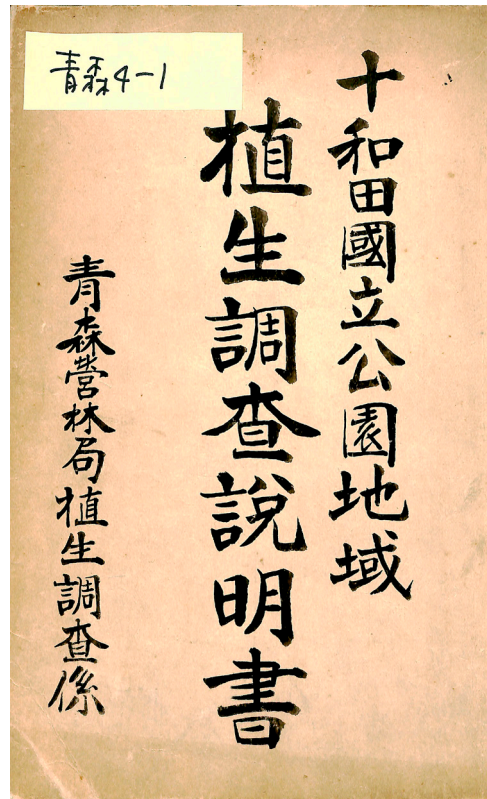 青森4-1
十和田國立公園地域
植生調查説明書
青森営林局植生調查係